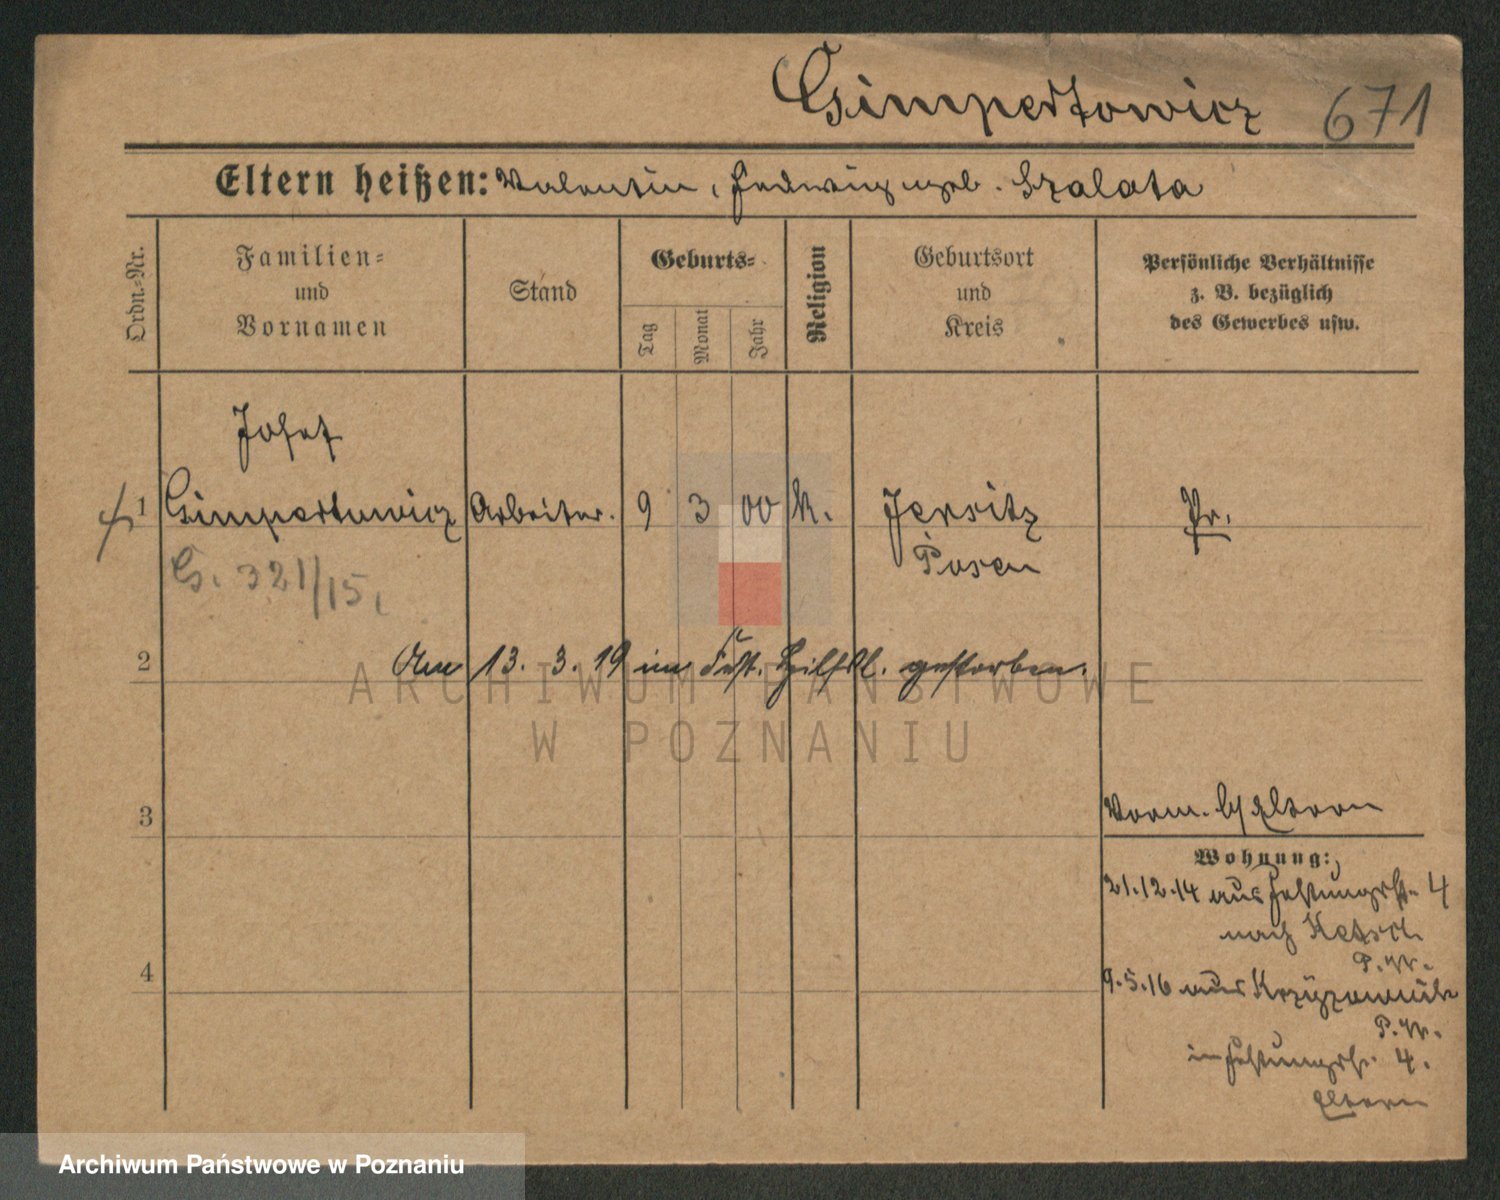 Gimpertowicz 671
Eltern heißen: Valentin, Hedwig geb. Szalata
Ordn.-Nr.
Familien-
und
Vornamen
Stand
Geburts-
Tag
Monat
Jahr
Religion
Geburtsort
und
Kreis
Persönliche Verhältnisse
z. B. bezüglich
des Gewerbes usw.
Josef
1 Gimpertowicz Arbeiter. 9 3 00 K. Jersitz Pr.
Posen
G. 321/15.
2 Am 13. 3. 19 im Fest. Hilfsl. gestorben.
3
Vorm. b/ Eltern
Wohnung:
21.12.14 aus Festungsstr. 4
nach
P.W.
4
9.5.16 aus
P.W.
in Festungsstr. 4.
Eltern
ARCHIWUM PAŃSTWOWE
W POZNANIU
Archiwum Państwowe w Poznaniu